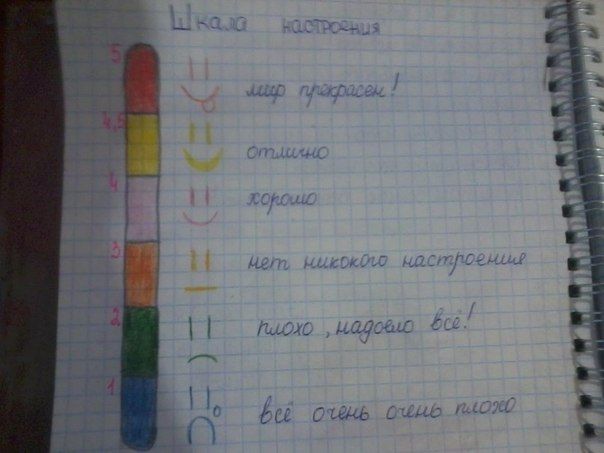 Шкала настроения
5 мир прекрасен!
4,5 отлично
4 хорошо
3 нет никокого настроения
2 плохо, надоело всё!
1 всё очень очень плохо